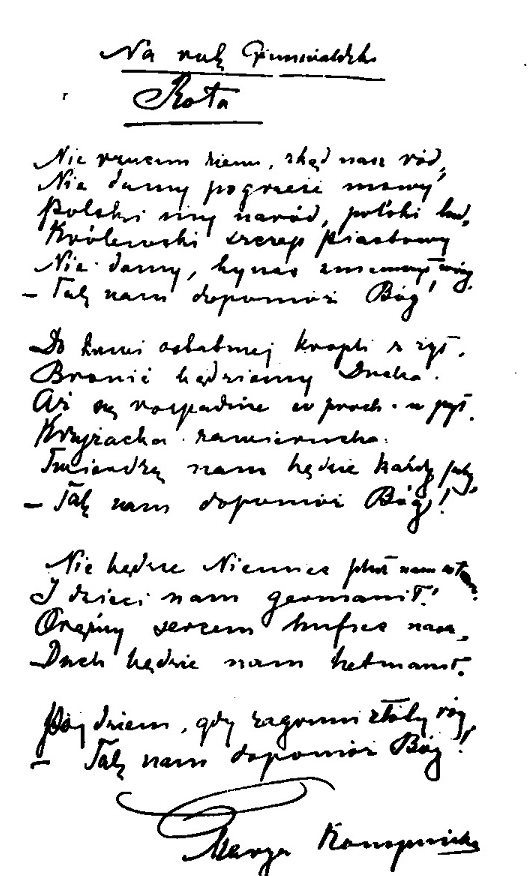 Na rok Grunwaldzki
Rota
Nie rzucim ziemi, skąd nasz ród,
Nie damy pogrześć mowy!
Polski my naród, polski lud,
Królewski szczep Piastowy
Nie damy, by nas zniemczył wróg.
– Tak nam dopomóż Bóg!
Do krwi ostatniej kropli z żył.
Bronić będziemy Ducha.
Aż się rozpadnie w proch i w pył.
Krzyżacka zawierucha.
Twierdzą nam będzie każdy próg
– Tak nam dopomóż Bóg!
Nie będzie Niemiec pluł nam w twarz
I dzieci nam germanił.
Orężny sercem hufiec nasz,
Duch będzie nam hetmanił.
Pójdziem, gdy zagrzmi złoty róg,
– Tak nam dopomóż Bóg!
Marya Konopnicka